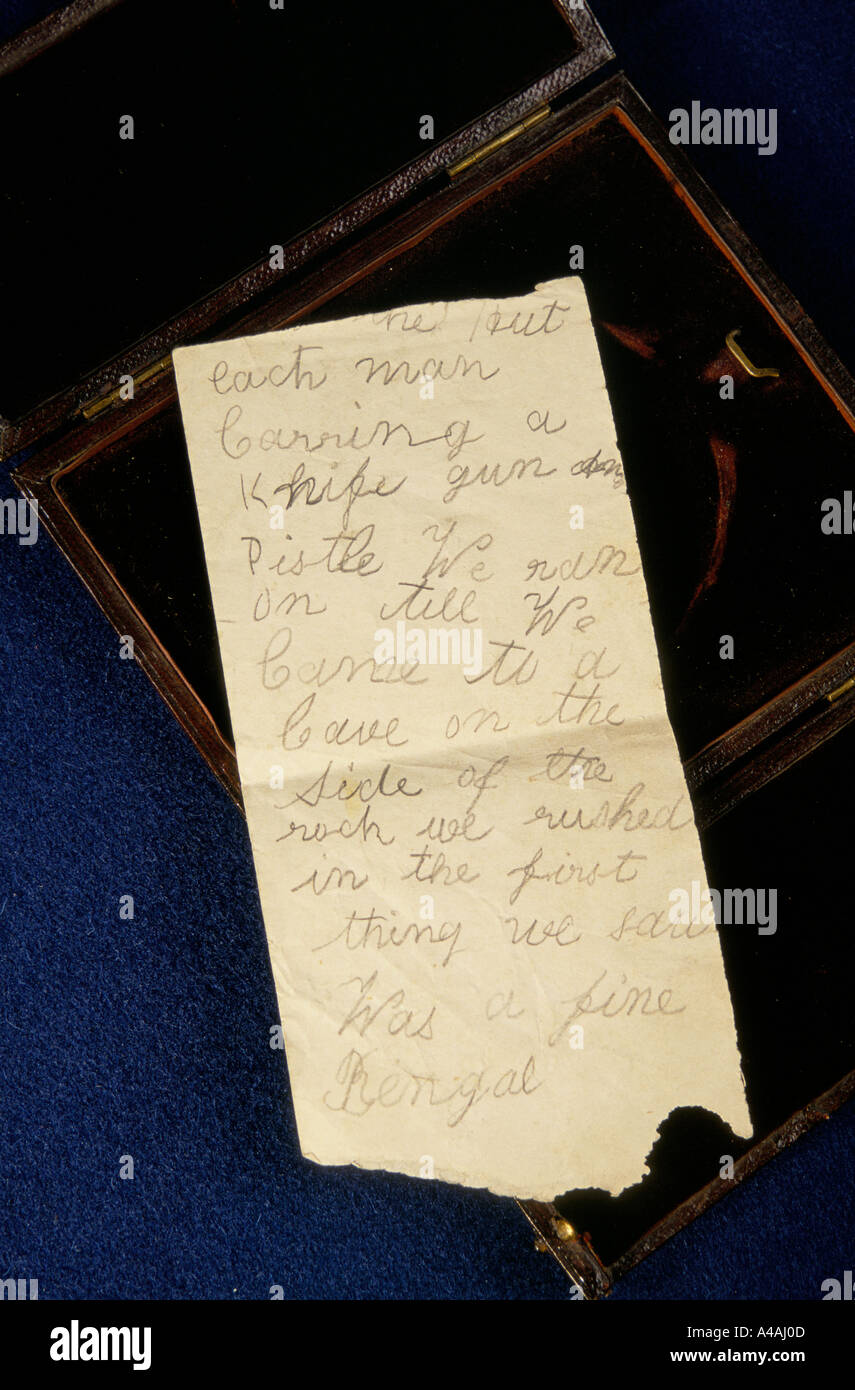 he put
each man
Carring a
Knife gun
Pistle We ran
on till We
Came to a
Cave on the
side of the
rock we rushed
in the first
thing we saw
Was a fine
Bengal
alamy
Image ID: A4AJ0D
www.alamy.com